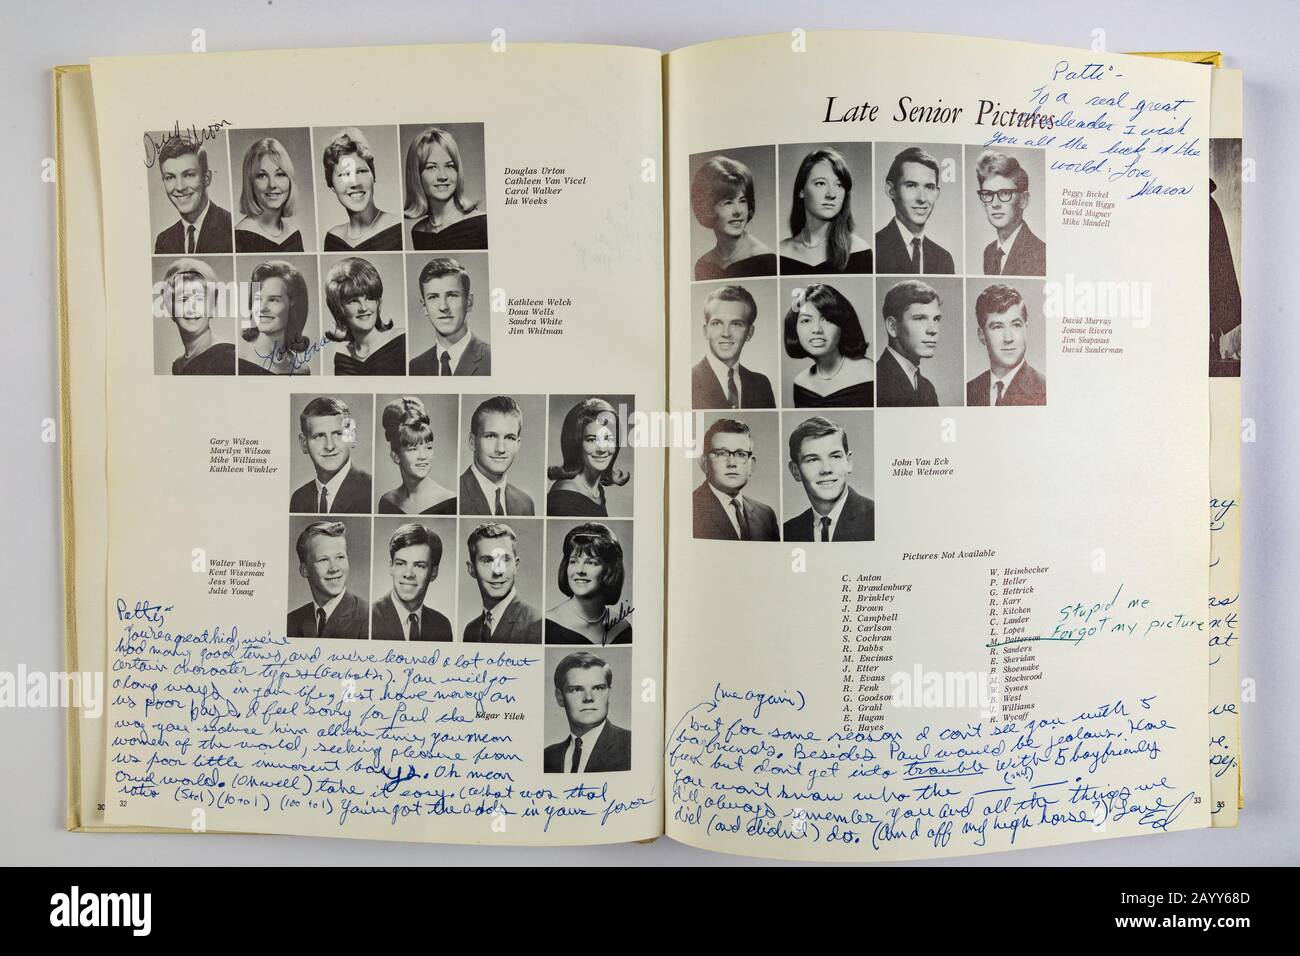 Doug Urton
Douglas Urton
Cathleen Van Vicel
Carol Walker
Ida Weeks
Kathleen Welch
Dona Wells
Sandra White
Jim Whitman
Love
Dona
Gary Wilson
Marilyn Wilson
Mike Williams
Kathleen Winkler
Walter Winsby
Kent Wiseman
Jess Wood
Julie Young
Julie
Edgar Yilek
Patti-
You're a great kid, we've
had many good times, and we've learned a lot about
certain character types. You will go
a long ways in your life, just have mercy on
us poor boys. I feel sorry for Paul the
way you seduce him all the time, you mean
women of the world, seeking pleasure from
us poor little innocent boys. Oh mean
cruel world. (Oh well) take it easy. (What was that
ratio (5 to 1) (10 to 1) (100 to 1) You've got the odds in your favor
32
30
Late Senior Pictures
Patti-
To a real great
cheerleader. I wish
you all the luck in the
world. Love
Sharon
Peggy Bickel
Kathleen Higgs
David Magner
Mike Mandell
David Murray
Joanne Rivera
Jim Shapanus
David Sunderman
John Van Eck
Mike Wetmore
Pictures Not Available
C. Anton
R. Brandenburg
R. Brinkley
J. Brown
N. Campbell
D. Carlson
S. Cochran
R. Dabbs
M. Encinas
J. Etter
M. Evans
R. Fenk
G. Goodson
A. Grahl
E. Hagan
G. Hayes
W. Heimbecher
P. Heller
G. Hettrick
R. Karr
R. Kitchen
C. Lander
L. Lopes
M. Patterson
R. Sanders
E. Sheridan
B. Shoemake
M. Stockwood
W. Symes
B. West
J. Williams
R. Wycoff
Stupid me
Forgot my picture
(me again)
but for some reason I can't see you with 5
boyfriends. Besides Paul would be jealous. Have
fun but don't get into trouble with 5 boyfriends
you won't know who the
I'll always remember you and all the things we
did (and didn't) do. (Am I off my high horse?) Love
Ed
33
35
alamy
Image ID: 2AYY68D
www.alamy.com